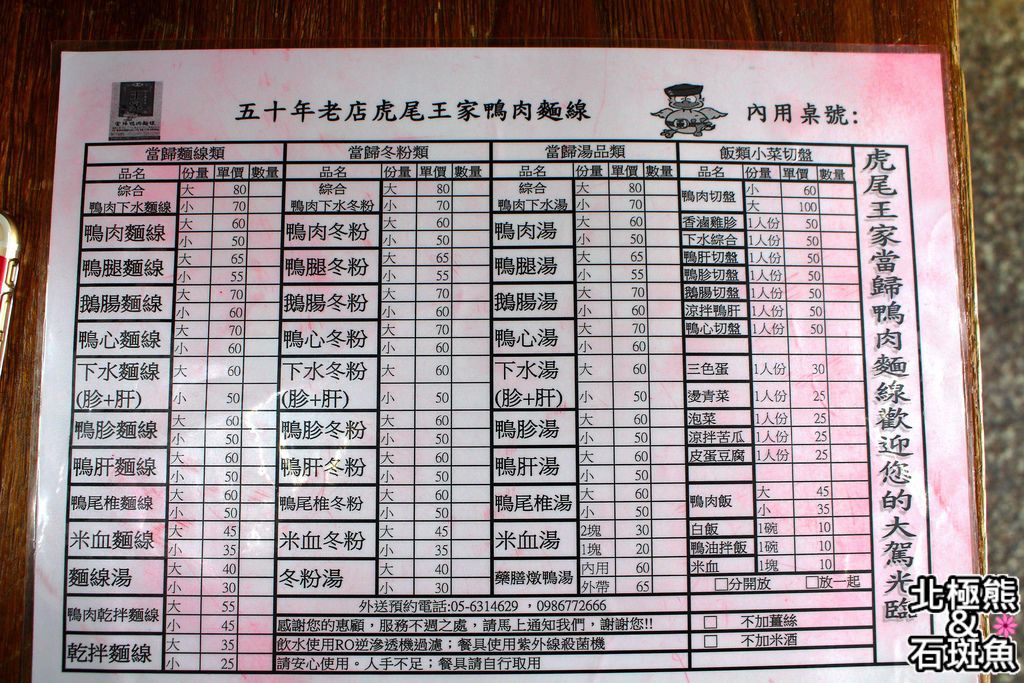 五十年老店虎尾王家鴨肉麵線
內用桌號:
當歸麵線類
品名 份量 單價 數量
綜合鴨肉下水麵線 大 80
小 70
鴨肉麵線 大 60
小 50
鴨腿麵線 大 65
小 55
鵝腸麵線 大 70
小 60
鴨心麵線 大 70
小 60
下水麵線(胗+肝) 大 60
小 50
鴨胗麵線 大 60
小 50
鴨肝麵線 大 60
小 50
鴨尾椎麵線 大 60
小 50
米血麵線 大 45
小 35
麵線湯 大 40
小 30
鴨肉乾拌麵線 大 55
小 45
乾拌麵線 大 35
小 25
當歸冬粉類
品名 份量 單價 數量
綜合鴨肉下水冬粉 大 80
小 70
鴨肉冬粉 大 60
小 50
鴨腿冬粉 大 65
小 55
鵝腸冬粉 大 70
小 60
鴨心冬粉 大 70
小 60
下水冬粉(胗+肝) 大 60
小 50
鴨胗冬粉 大 60
小 50
鴨肝冬粉 大 60
小 50
鴨尾椎冬粉 大 60
小 50
米血冬粉 大 45
小 35
冬粉湯 大 40
小 30
當歸湯品類
品名 份量 單價 數量
綜合鴨肉下水湯 大 80
小 70
鴨肉湯 大 60
小 50
鴨腿湯 大 65
小 55
鵝腸湯 大 70
小 60
鴨心湯 大 70
小 60
下水湯(胗+肝) 大 60
小 50
鴨胗湯 大 60
小 50
鴨肝湯 大 60
小 50
鴨尾椎湯 大 60
小 50
米血湯 2塊 30
1塊 20
藥膳燉鴨湯 內用 60
外帶 65
飯類小菜切盤
品名 份量 單價 數量
鴨肉切盤 小 60
大 100
香滷雞胗 1人份 50
下水綜合 1人份 50
鴨肝切盤 1人份 50
鴨胗切盤 1人份 50
鵝腸切盤 1人份 50
涼拌鴨肝 1人份 50
鴨心切盤 1人份 50
三色蛋 1人份 30
燙青菜 1人份 25
泡菜 1人份 25
涼拌苦瓜 1人份 25
皮蛋豆腐 1人份 25
鴨肉飯 大 45
小 35
白飯 1碗 10
鴨油拌飯 1碗 10
米血 1塊 10
□分開放 □放一起
□ 不加薑絲
□ 不加米酒
外送預約電話:05-6314629 , 0986772666
感謝您的惠顧，服務不週之處，請馬上通知我們，謝謝您!!
飲水使用RO逆滲透機過濾；餐具使用紫外線殺菌機
請安心使用。人手不足；餐具請自行取用
虎尾王家當歸鴨肉麵線歡迎您的大駕光臨
北極熊
&
石斑魚